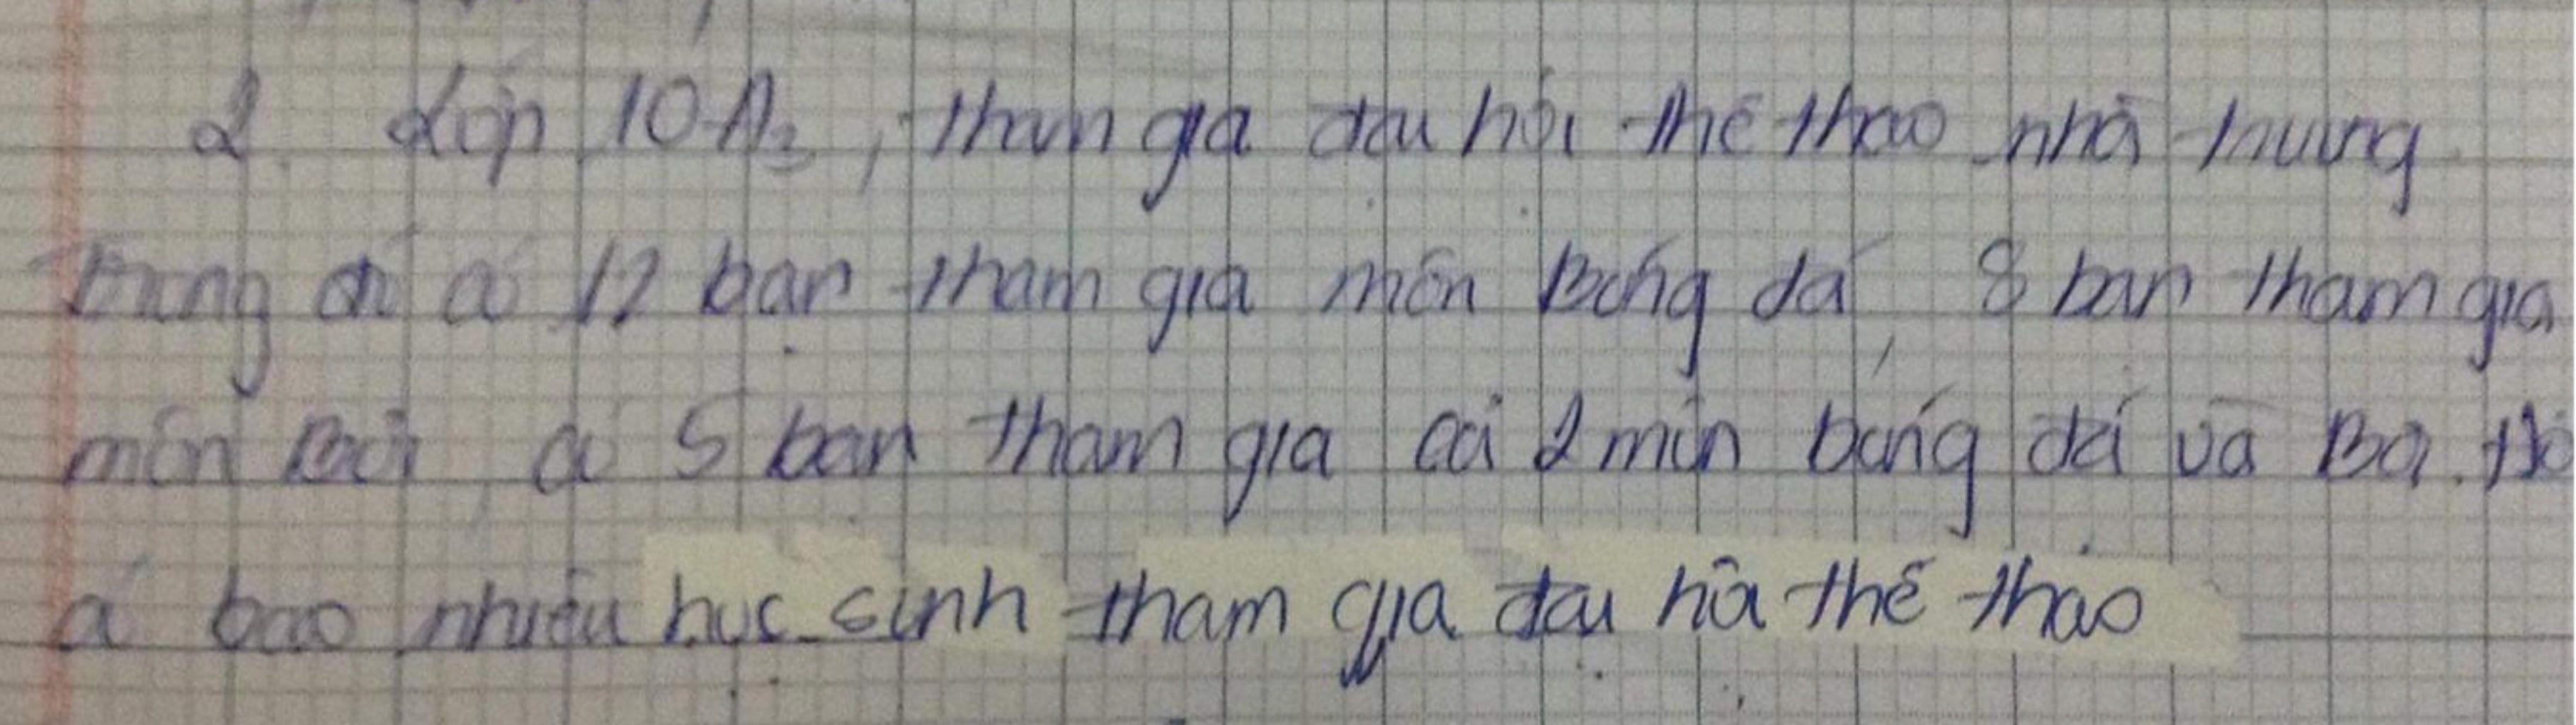 2. Lớp 10A3, tham gia đại hội thể thao nhà trường
trong đó có 12 bạn tham gia môn Bóng đá, 8 bạn tham gia
môn Bơi, có 5 bạn tham gia cả 2 môn bóng đá và Bơi. Hỏi
có bao nhiêu học sinh tham gia đại hội thể thao